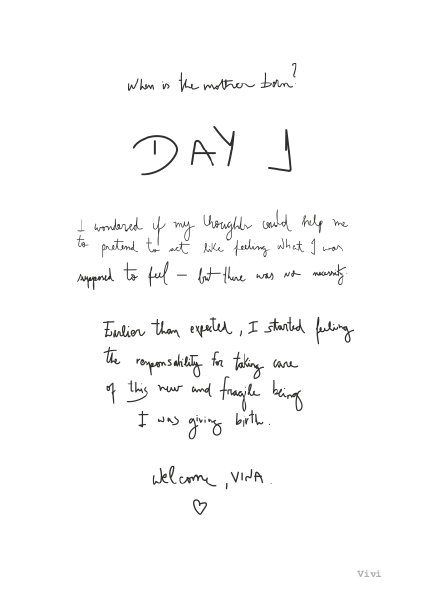 When is the mother born?
DAY 1
I wondered if my thoughts could help me
to pretend to act like feeling what I was
supposed to feel – but there was no necessity
Earlier than expected, I started feeling
the responsability for taking care
of this new and fragile being
I was giving birth.
Welcome, VINA.
Vivi